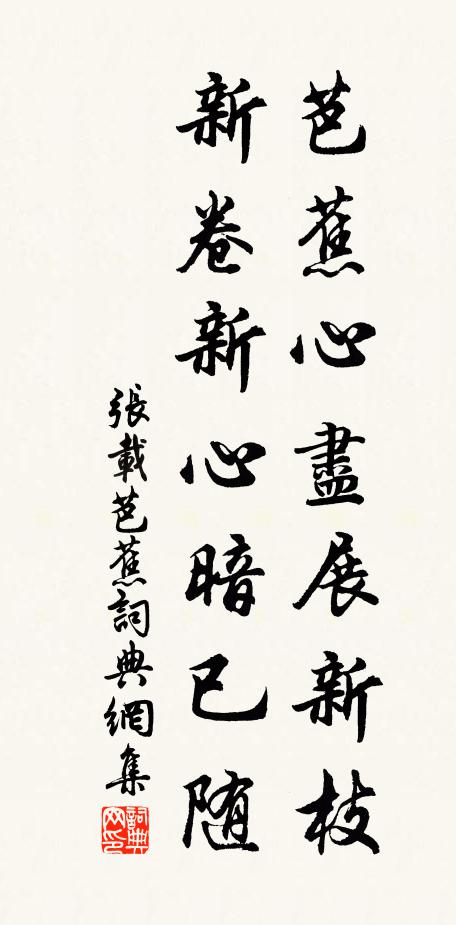 芭蕉心盡展新枝
新卷新心暗已随
張載芭蕉詞典網集
詞典网印